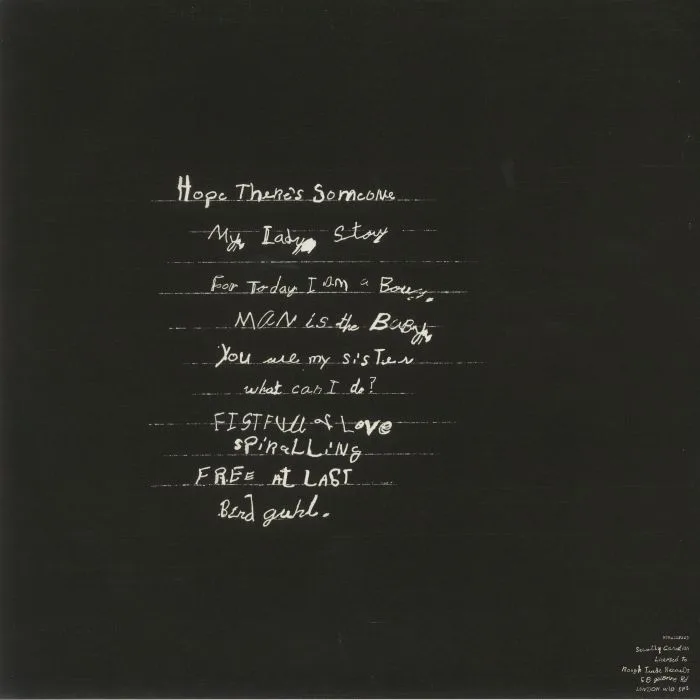 Hope There's Someone
My Lady Story
For Today I am a Boy
MAN is the Baby
You are my sister
what can I do?
FISTFULL of Love
SPiRaLLiNg
FREE AT LAST
Bird guhl.
Secretly Canadian
Licensed To
Rough Trade Records
LONDON W10 5PZ